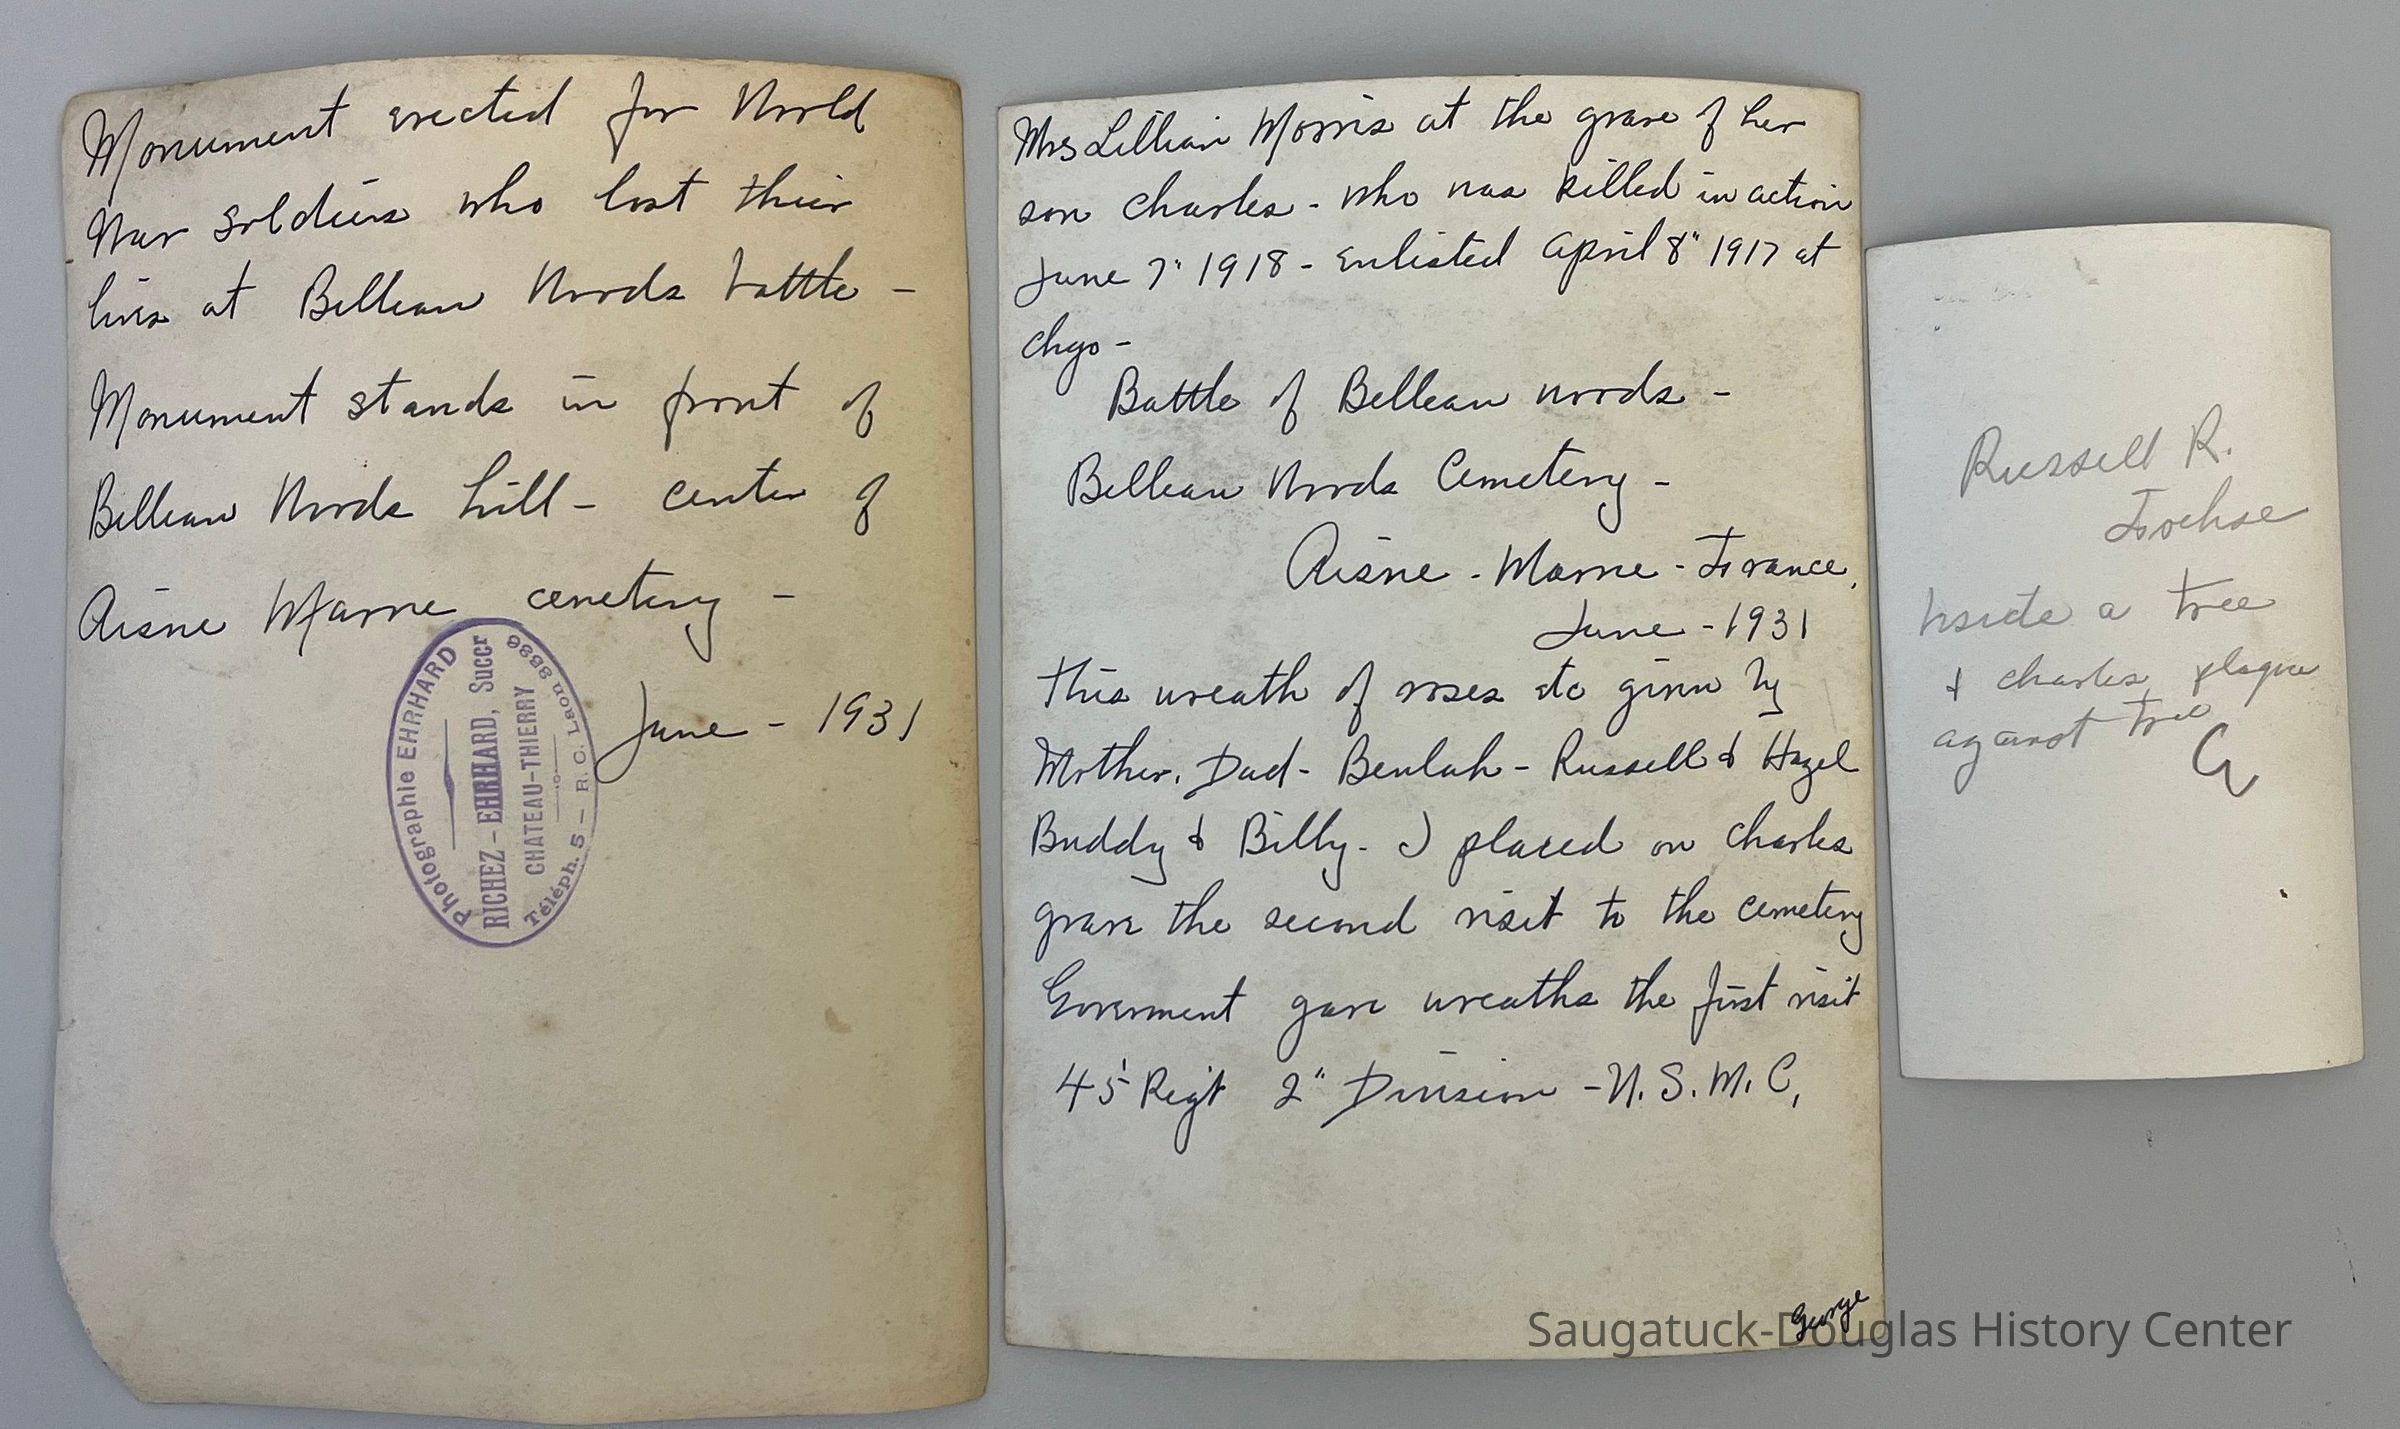 Monument erected for World
War soldiers who lost their
lives at Belleau Woods battle -
Monument stands in front of
Belleau Woods hill - center of
Aisne Marne cemetery -
June - 1931
Photographie EHRHARD
RICHEZ - EHRHARD, Succr
CHATEAU-THIERRY
Téléph. 5 - R.C. Laon
Mrs Lillian Morris at the grave of her
son Charles - who was killed in action
June 7" 1918 - Enlisted April 8" 1917 at
Chgo -
Battle of Belleau Woods -
Belleau Woods Cemetery -
Aisne - Marne - France,
June - 1931
This wreath of roses etc given by
Mother, Dad - Beulah - Russell & Hazel
Buddy & Billy - I placed on Charles
grave the second visit to the cemetery
Goverment gave wreaths the first visit
45 Regt 2" Division - U.S.M.C,
George
Russell R.
Fochse
Inside a tree
& Charles plaque
against tree
Saugatuck-Douglas History Center